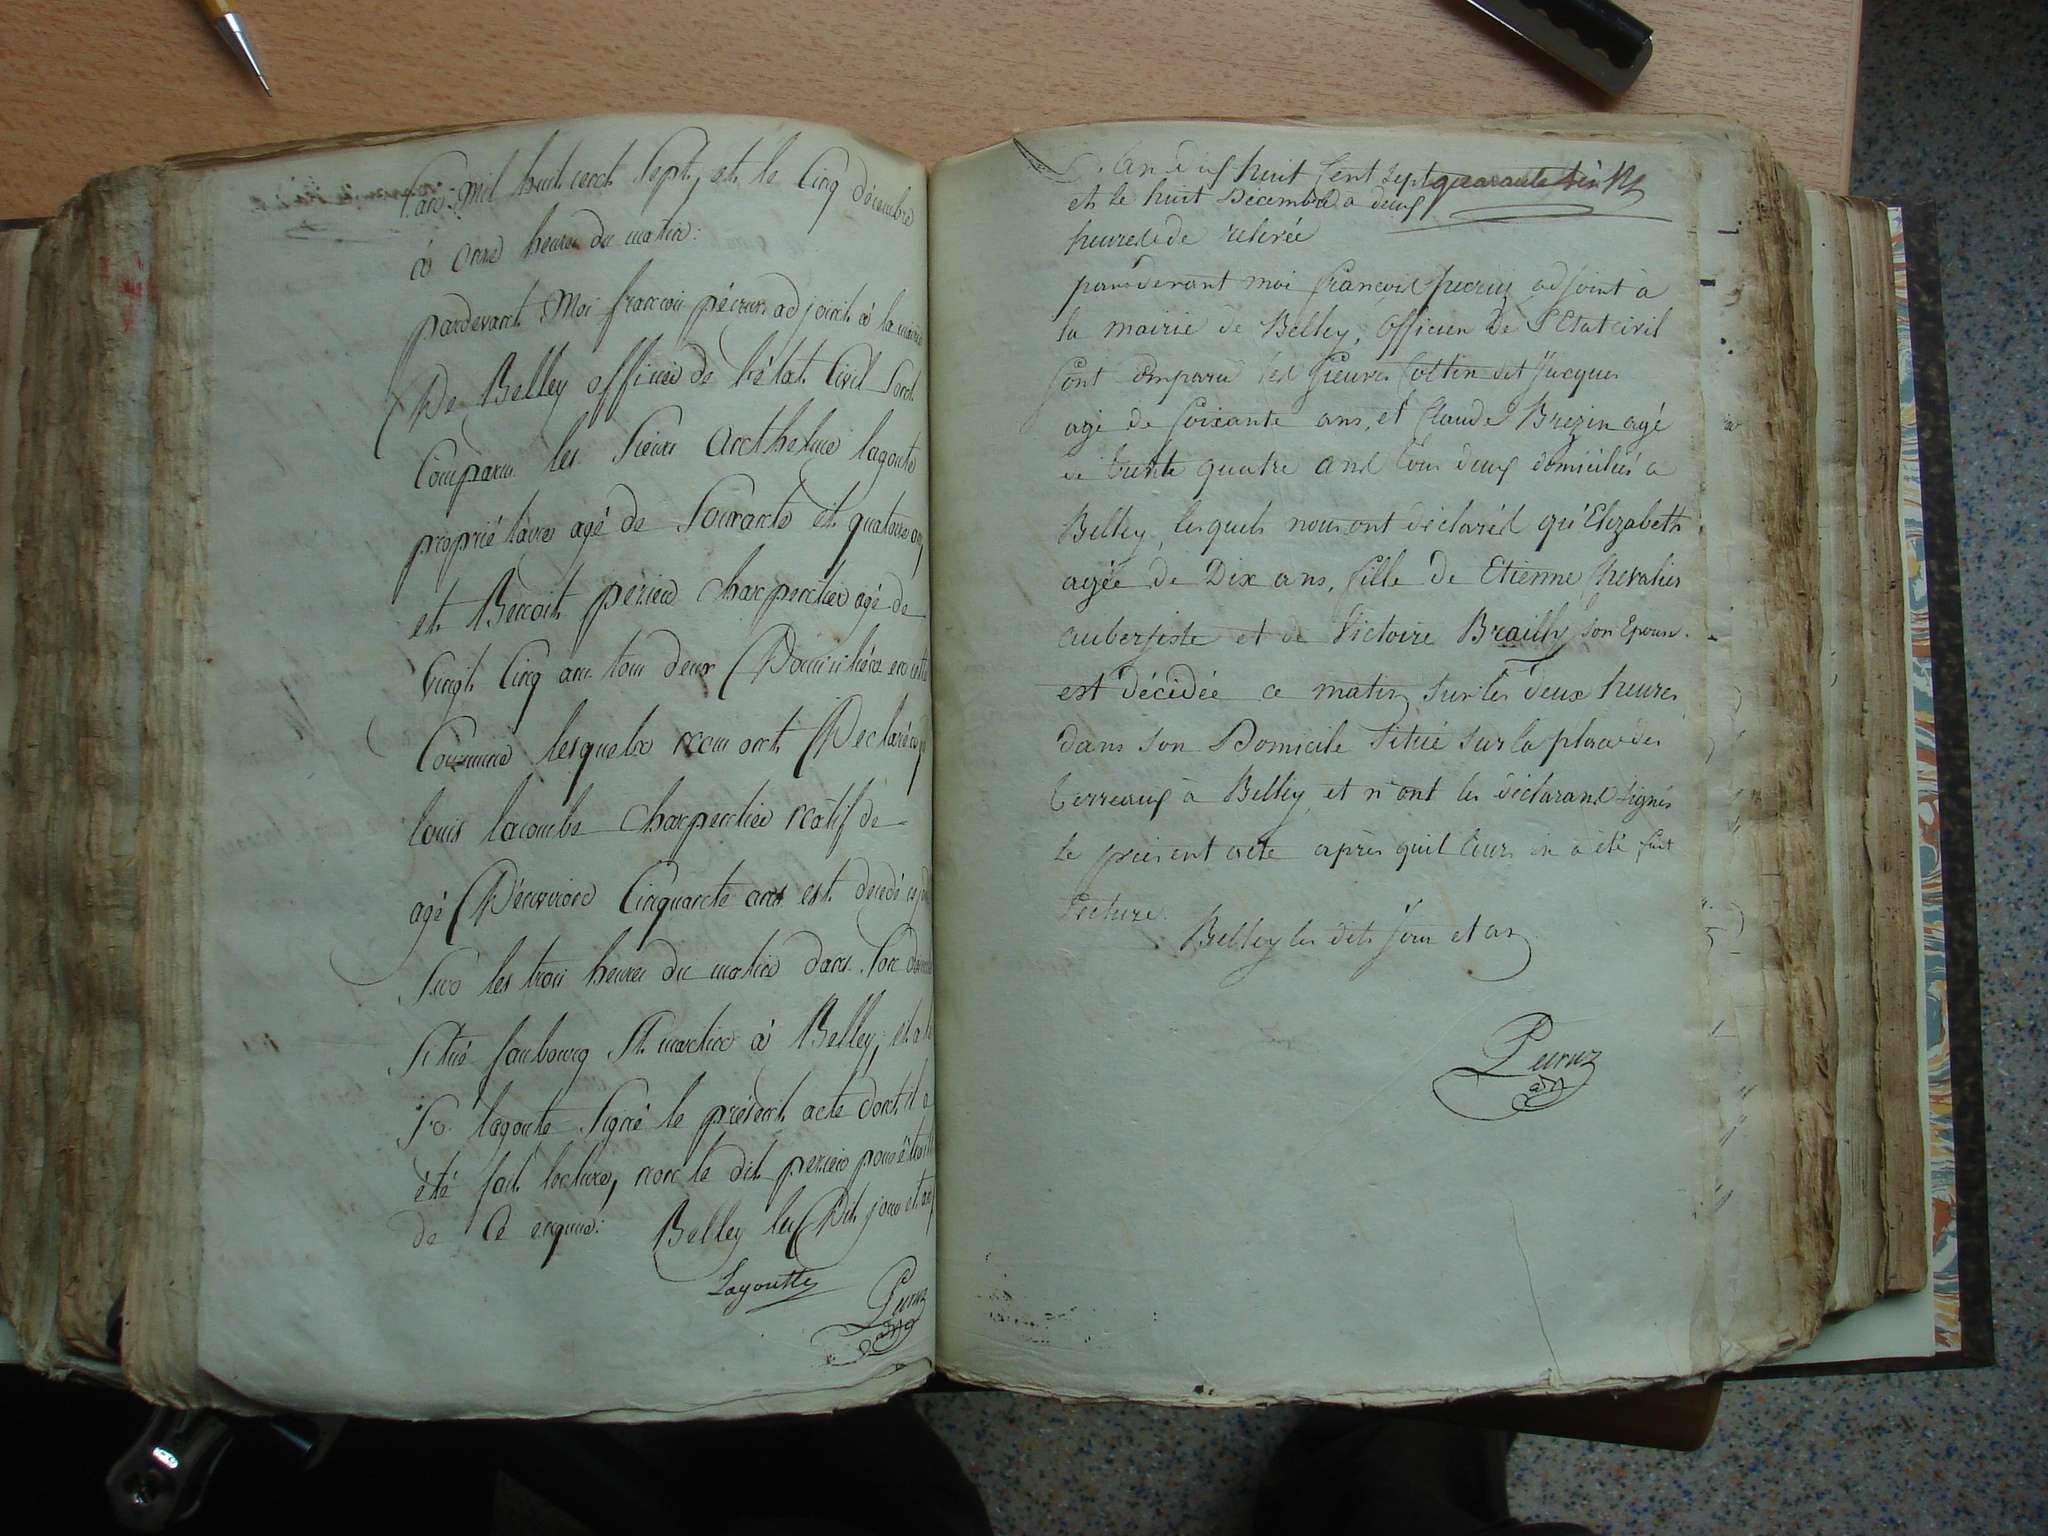 L'an Mil huit cent Sept, et le Cinq décembre
à onze heures du matin:
pardevant Moi françois pécruz adjoint à la mairie
De Belley officier de l'état Civil Sont
Comparu les Sieurs Anthelme lagoute
propriétaire agé de Soixante et quatorze ans
et Benoit perier charpentier agé de
vingt Cinq ans tous deux Domiciliéz en cette
Commune lesquels nous ont Déclaré
louis lacombe charpentier natif de
agé D'environ Cinquante ans est décédé ce
Sur les trois heures du matin dans Son
Situé faubourg St. martin à Belley, et a le
Sr. lagoute Signé le présent acte dont il a
été fait lecture, non le dit perier pour
de Ce enquis: Belley les Dit jour et an
Lagoutte Pecruz
adj
L'an dix huit Cent Sept quarante Six
et le huit Decembre a deux
heures de relevée
par devant moi François Pecruz adjoint à
la mairie de Belley, Officier de l'Etat civil
Sont comparu les Sieurs Collin dit Jacques
agé de Soixante ans, et Claude Brezin agé
de trente quatre ans tous deux domiciliés a
Belley, lesquels nous ont déclarés qu'Elizabeth
agée de Dix ans, fille de Etienne Chevalier
aubergiste et de Victoire Brailly son Epouse
est décidée ce matin sur les deux heures
dans son Domicile Situé sur la place des
terreaux à Belley, et n'ont les déclarans signés
le présent acte après quil leurs en a été fait
lecture.
Belley les dits jour et an
Pecruz
adj